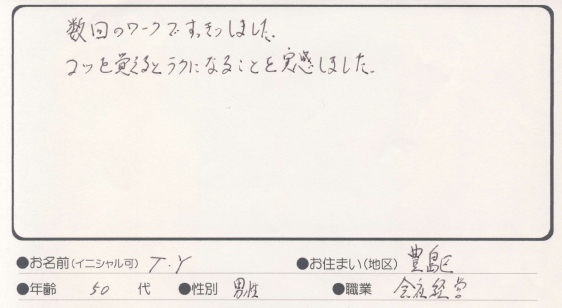 数回のワークですっきりしました。
コツを覚えるとラクになることを実感しました。
●お名前(イニシャル可) T.Y ●お住まい(地区) 豊島区
●年齢 50 代 ●性別 男性 ●職業 会社経営